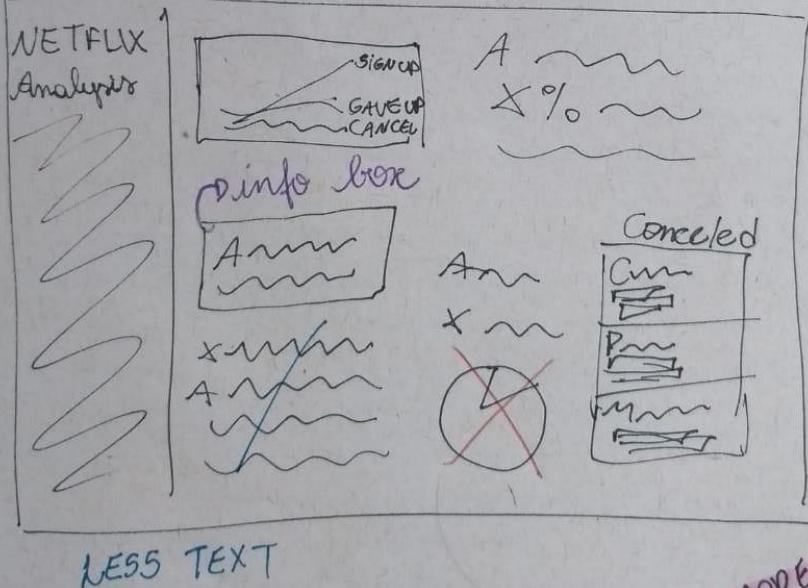 NETFLUX
Analysis
SIGN UP
GAVE UP
CANCEL
A
X %
info box
A
A
X
Canceled
C
P
M
X
A
LESS TEXT